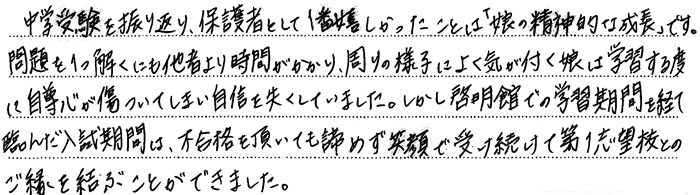 中学受験を振り返り、保護者として1番嬉しかったことは「娘の精神的な成長」です。
問題を1つ解くにも他者より時間がかかり、周りの様子によく気が付く娘は学習する度
に自尊心が傷ついてしまい自信を失くしていました。しかし啓明館での学習期間を経て
臨んだ入試期間は、不合格を頂いても諦めず笑顔で受け続けて第1志望校との
ご縁を結ぶことができました。